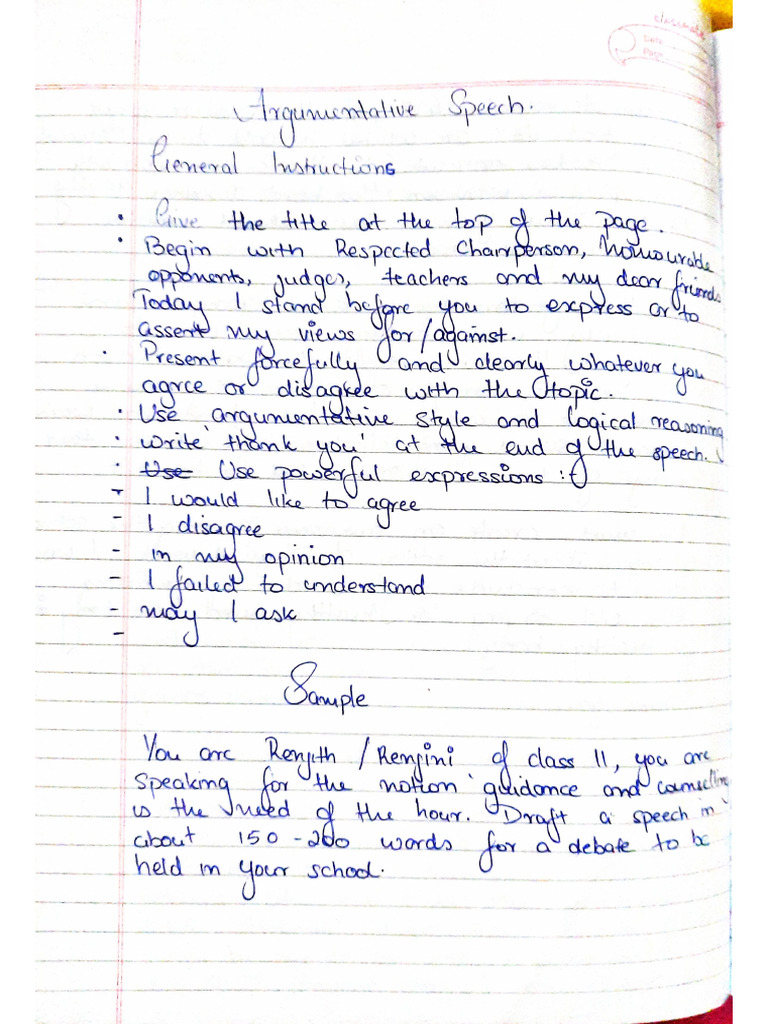 classmate
Date
Page
Argumentative Speech.
General Instructions
• Give the title at the top of the page.
• Begin with Respected Chairperson, honourable
opponents, judges, teachers and my dear friends
Today I stand before you to express or to
assert my views for/against.
• Present forcefully and clearly whatever you
agree or disagree with the topic.
• Use argumentative style and logical reasoning
• Write 'thank you' at the end of the speech.
• Use Use powerful expressions :-
- I would like to agree
- I disagree
- in my opinion
- I failed to understand
- may I ask
-
Sample
You are Renjith / Renjini of class 11, you are
speaking for the motion 'guidance and counselling
is the need of the hour. Draft a speech in
about 150-200 words for a debate to be
held in your school.